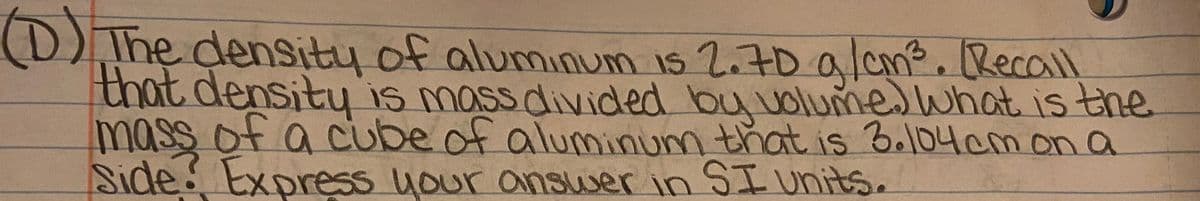 (D) The density of aluminum is 2.70 g/cm³. (Recall
that density is mass divided by volume.) What is the
mass of a cube of aluminum that is 3.104 cm on a
side? Express your answer in SI units.